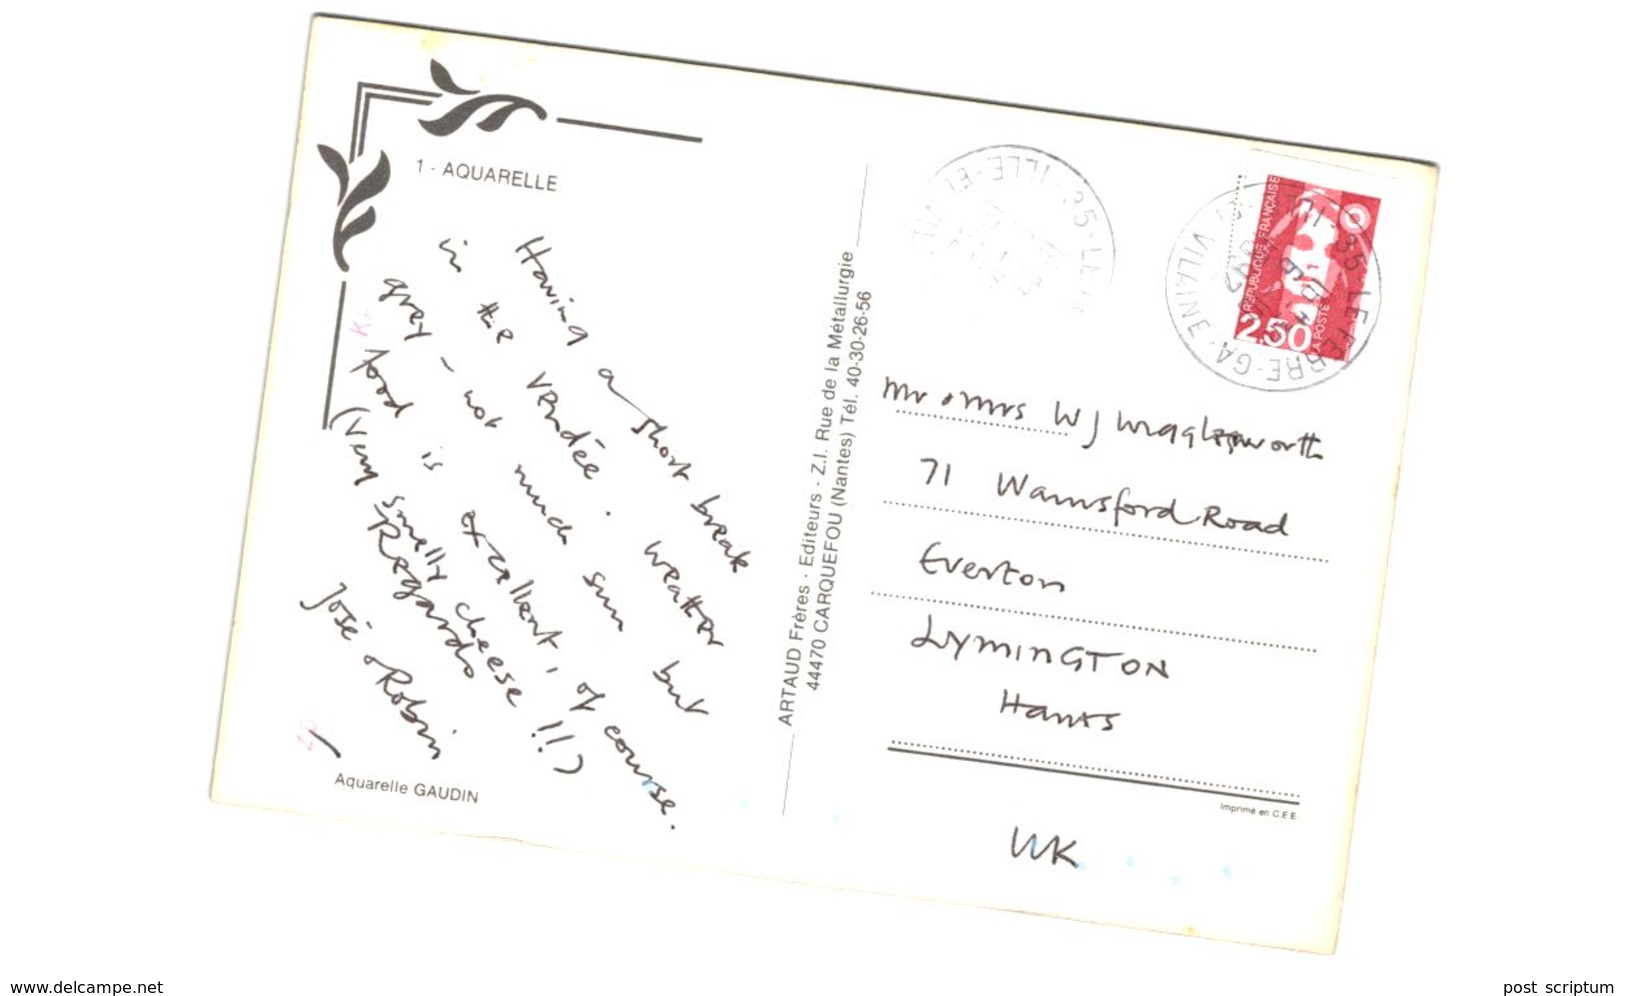 1 - AQUARELLE
Having a short break
in the Vendée. Weather
grey - not much sun but
food is excellent, of course.
(Very smelly cheese !!!)
Regards
José & Robin
Aquarelle GAUDIN
ARTAUD Frères - Editeurs - Z.I. Rue de la Métallurgie
44470 CARQUEFOU (Nantes) Tél. 40-30-26-56
35-LE ILLE-ET-VIL
REPUBLIQUE FRANÇAISE
2,50
LA POSTE
35 LE FERRE-GA VILAINE
Mr & Mrs WJ
71 Road
Everton
LYMINGTON
Hants
Imprimé en C.E.E.
UK
www.delcampe.net
post scriptum